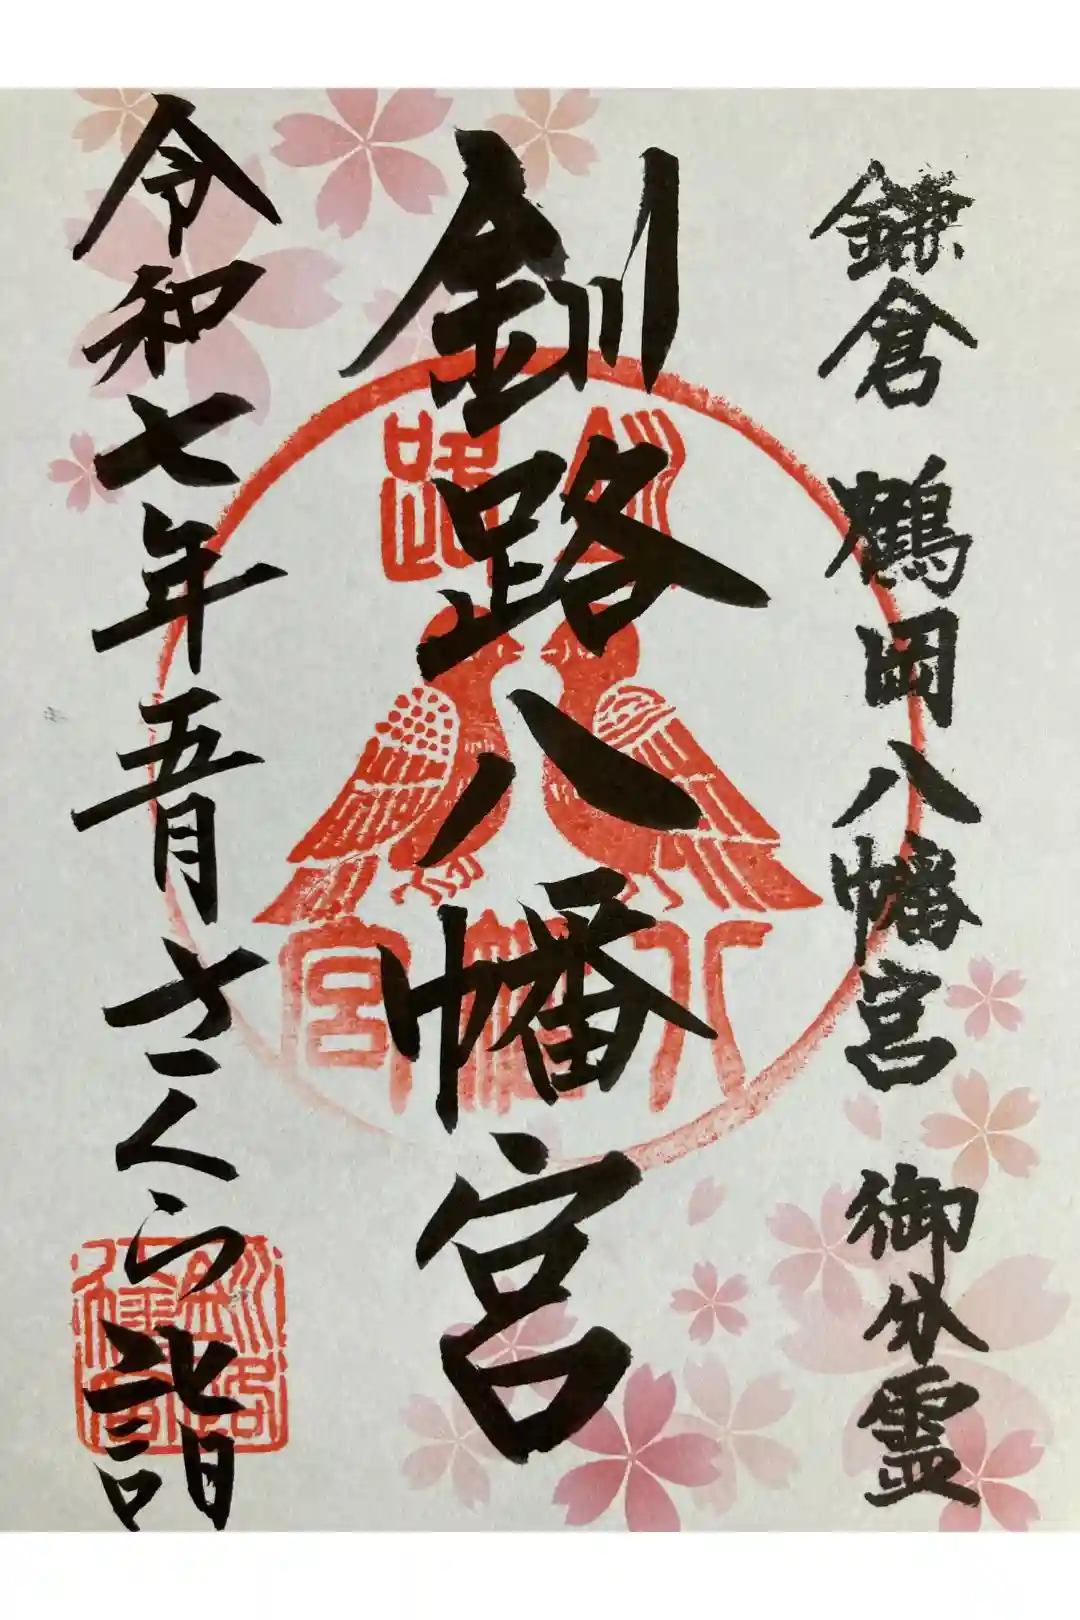 鎌倉 鶴岡八幡宮 御分霊
釧路八幡宮
令和七年五月さくら詣
釧路
八幡宮
釧路八幡宮